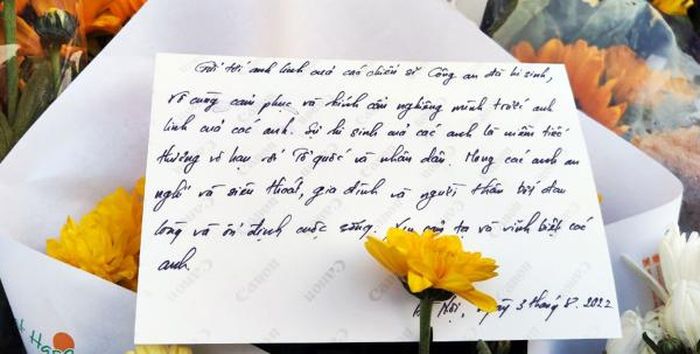 Gửi tới anh linh của các chiến sĩ Công an đã hi sinh,
Vô cùng cảm phục và kính cẩn nghiêng mình trước anh
linh của các anh. Sự hi sinh của các anh là niềm tiếc
thương vô hạn với Tổ quốc và nhân dân. Mong các anh an
nghỉ và siêu thoát, gia đình và người thân bớt đau
lòng và ổn định cuộc sống. và vĩnh biệt các
anh.
Nội, ngày 3 tháng 8. 2022
Canon